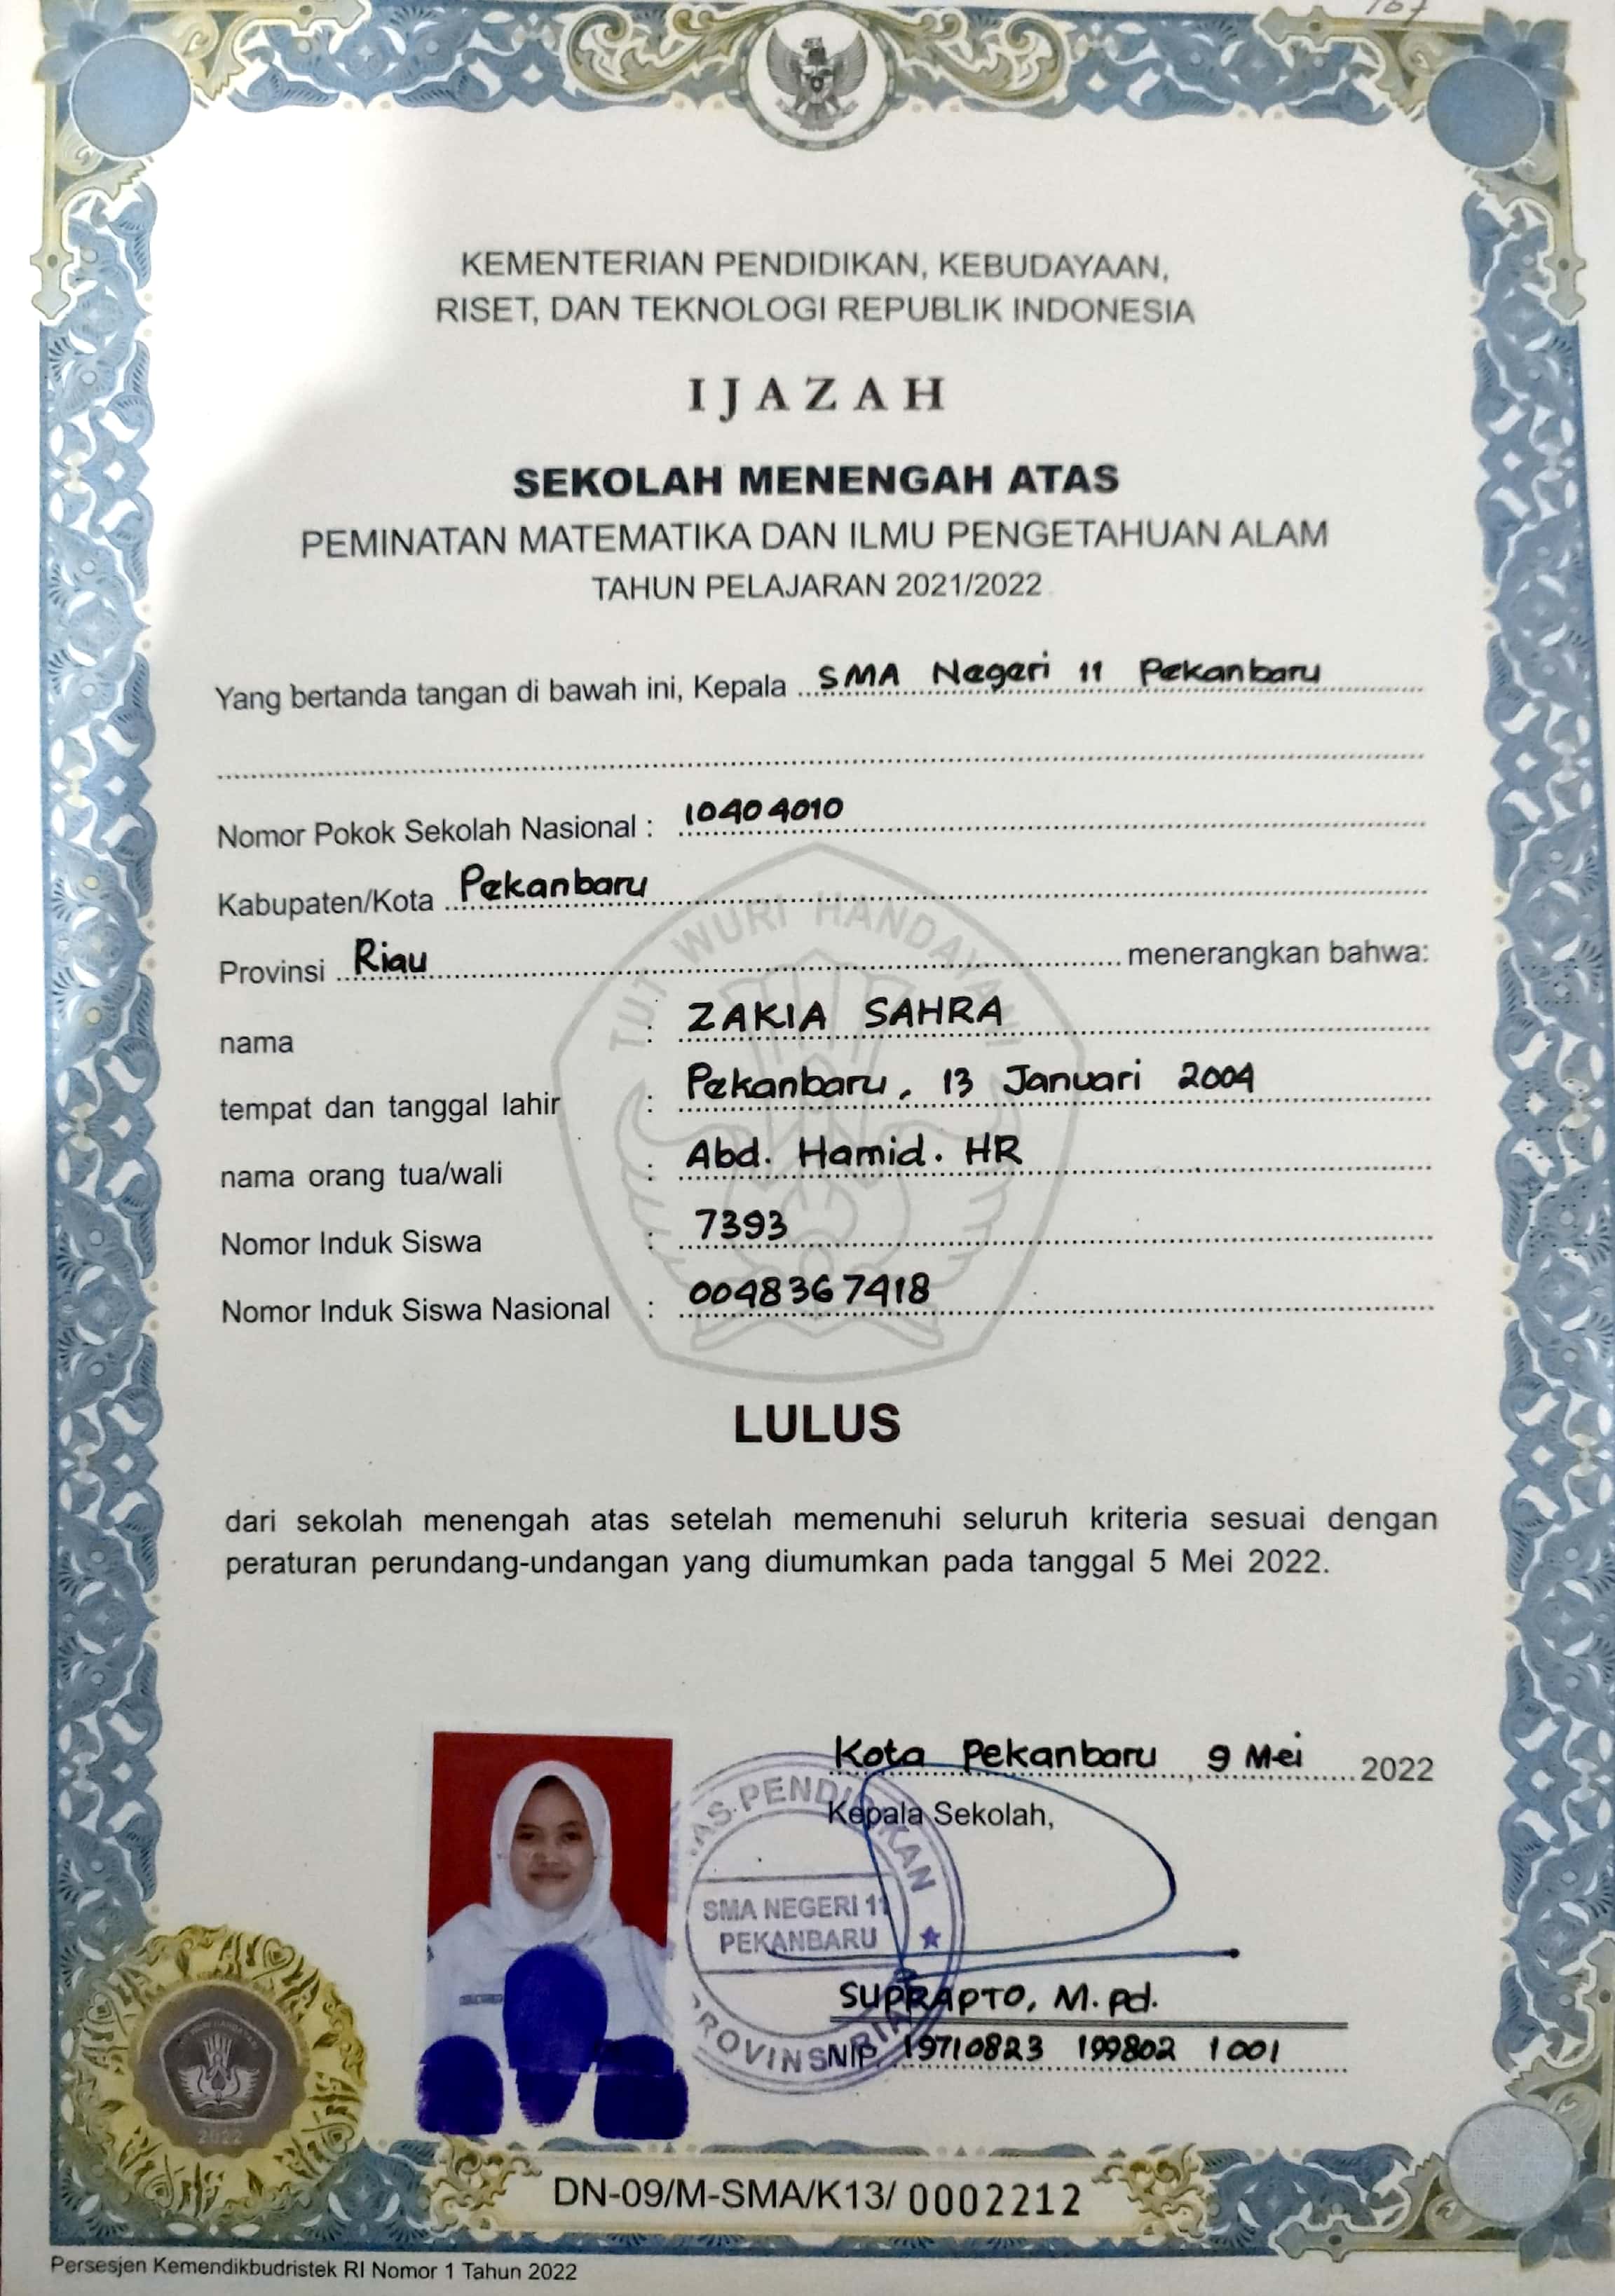 107
KEMENTERIAN PENDIDIKAN, KEBUDAYAAN,
RISET, DAN TEKNOLOGI REPUBLIK INDONESIA
IJAZAH
SEKOLAH MENENGAH ATAS
PEMINATAN MATEMATIKA DAN ILMU PENGETAHUAN ALAM
TAHUN PELAJARAN 2021/2022
Yang bertanda tangan di bawah ini, Kepala SMA Negeri 11 Pekanbaru
Nomor Pokok Sekolah Nasional : 10404010
Kabupaten/Kota Pekanbaru
TUT WURI HANDAYANI
Provinsi Riau menerangkan bahwa:
nama : ZAKIA SAHRA
tempat dan tanggal lahir : Pekanbaru, 13 Januari 2004
nama orang tua/wali : Abd. Hamid. HR
Nomor Induk Siswa : 7393
Nomor Induk Siswa Nasional : 0048367418
LULUS
dari sekolah menengah atas setelah memenuhi seluruh kriteria sesuai dengan
peraturan perundang-undangan yang diumumkan pada tanggal 5 Mei 2022.
Kota Pekanbaru, 9 Mei 2022
Kepala Sekolah,
PENDIDIKAN
SMA NEGERI 11
PEKANBARU
PROVINSI RIAU
SUPRAPTO, M.Pd.
NIP. 19710823 199802 1001
2022
DN-09/M-SMA/K13/ 0002212
Persesjen Kemendikbudristek RI Nomor 1 Tahun 2022